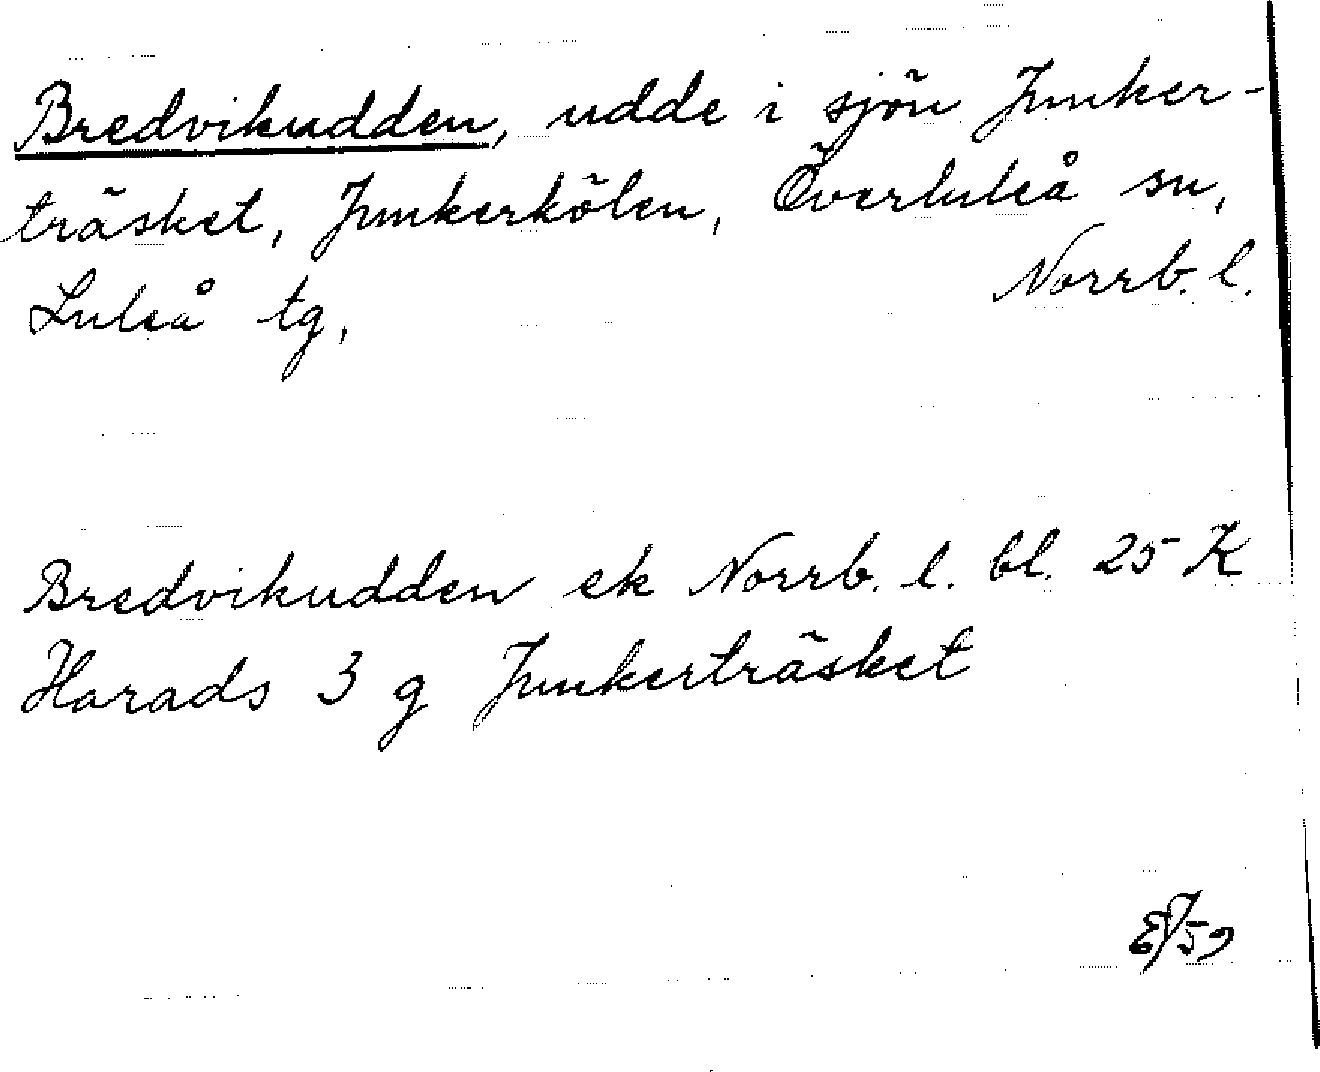 Bredvikudden, udde i sjön Junker-
träsket, Junkerkölen, Överluleå sn,
Luleå tg, Norrb. l.
Bredvikudden ek Norrb. l. bl. 25 K
Harads 3 g Junkerträsket
EJ/59